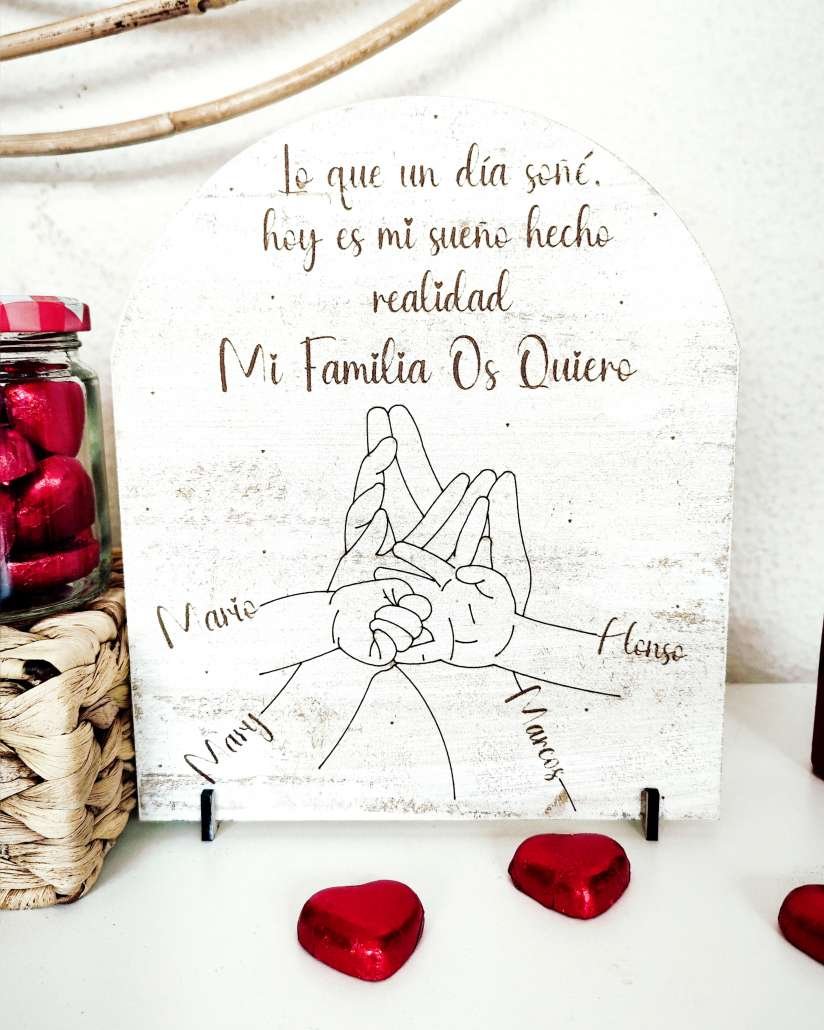 Lo que un día soñé,
hoy es mi sueño hecho
realidad
Mi Familia Os Quiero
Mario
Alonso
Mary
Marcos